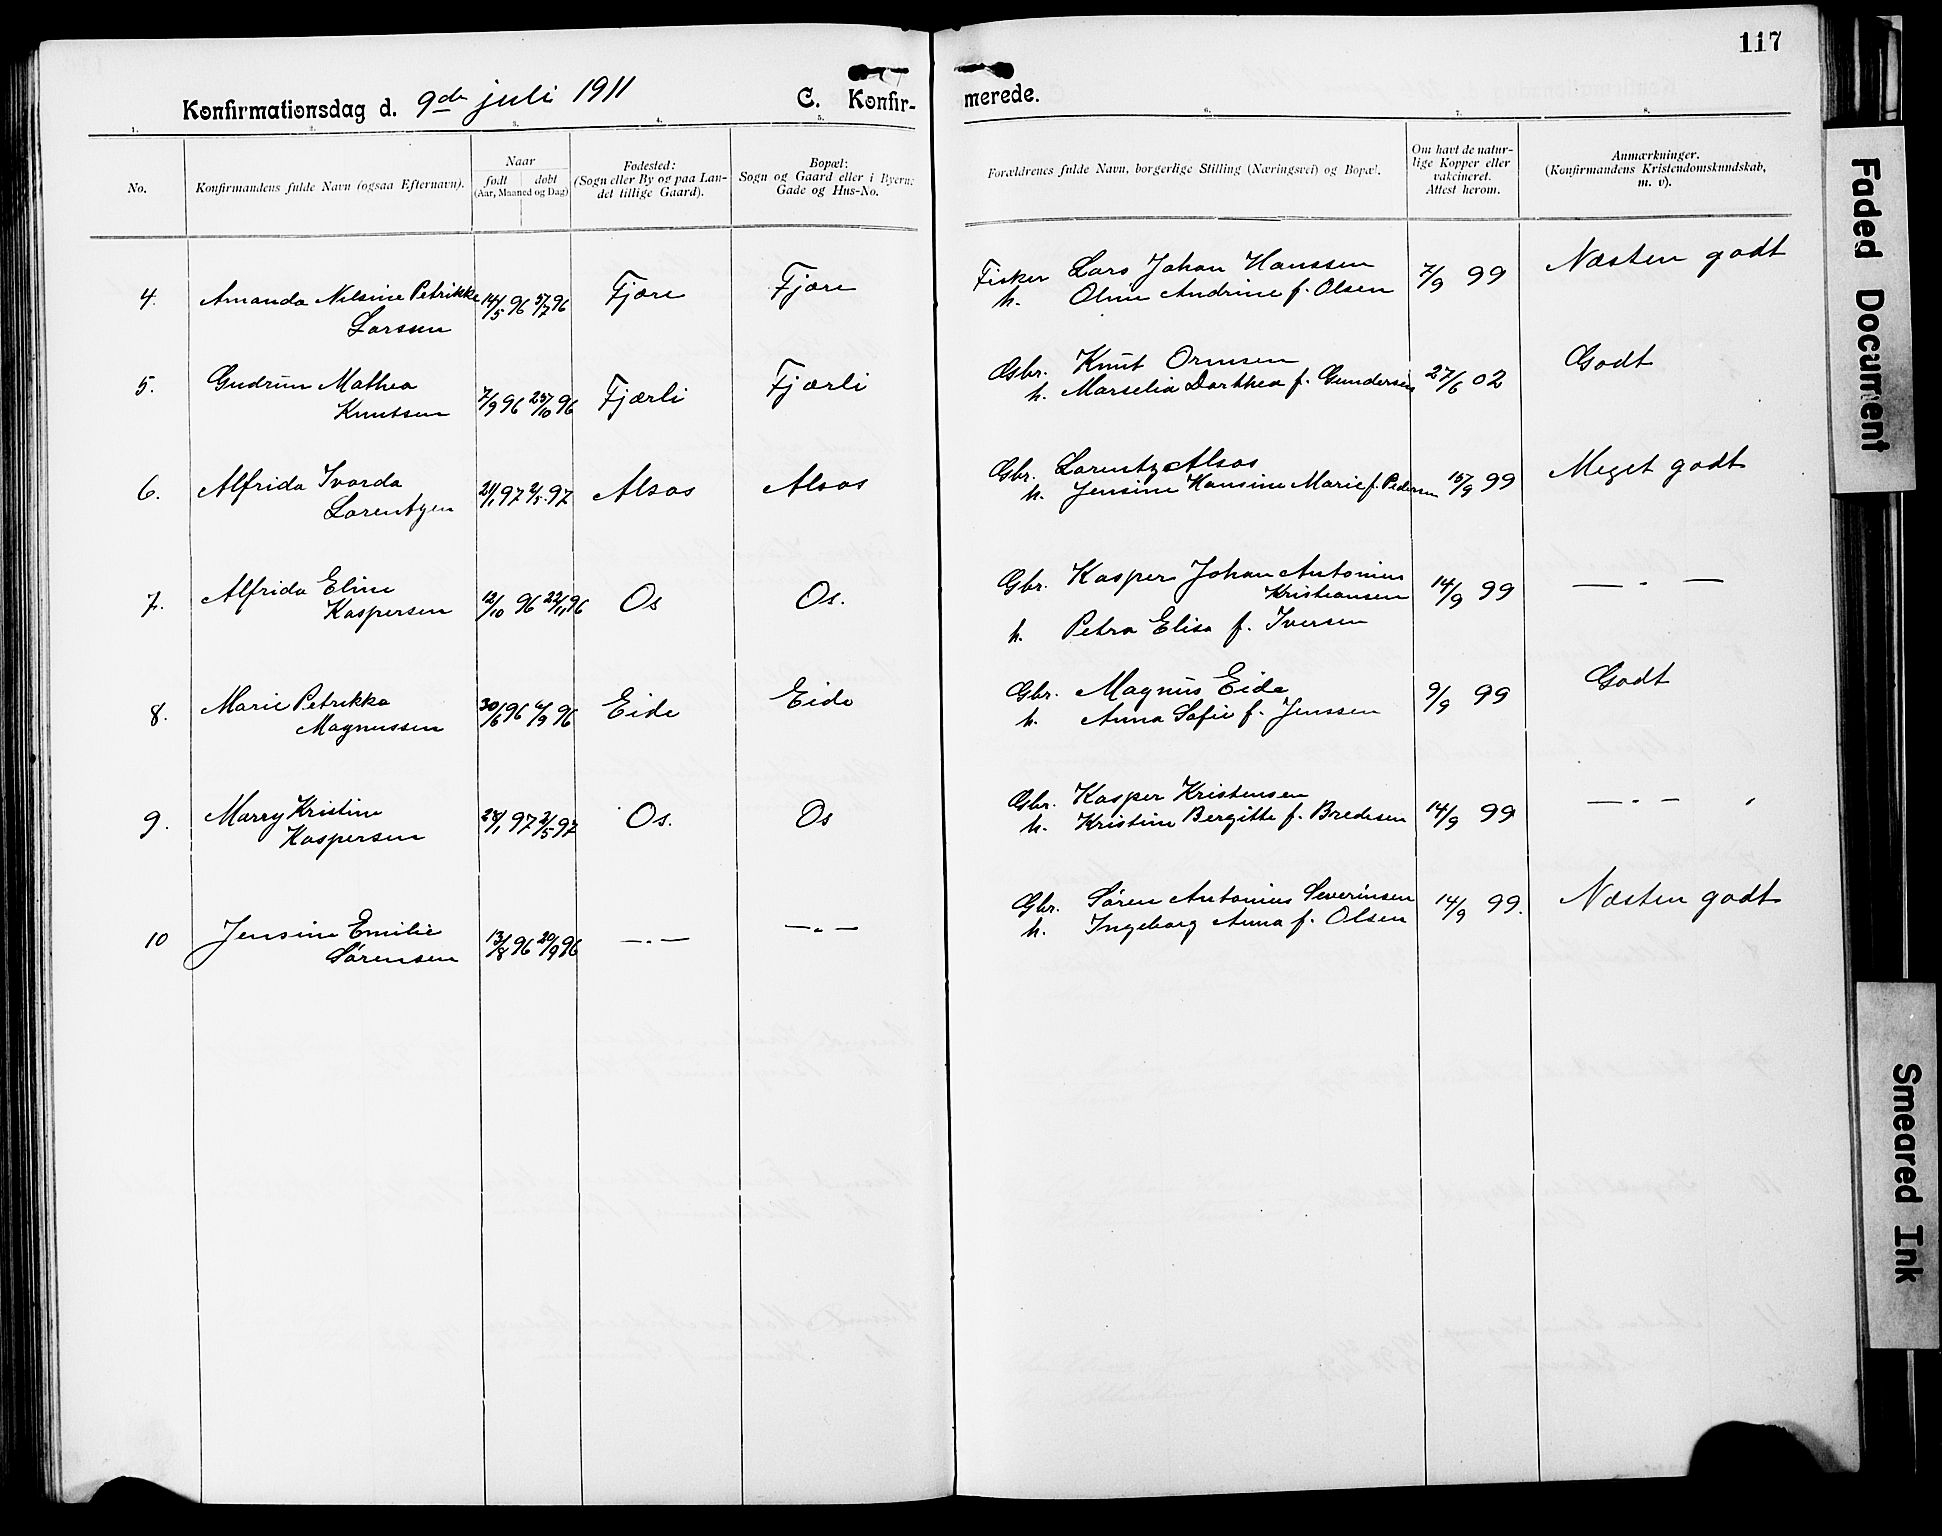 117
Konfirmationsdag d. 9de juli 1911
C. Konfir-
merede.
1. 2. 3. 4. 5. 6. 7. 8.
No.
Konfirmandens fulde Navn (ogsaa Efternavn).
Naar
født døbt
(Aar, Maaned og Dag)
Fødested:
(Sogn eller By og paa Lan-
det tillige Gaard).
Bopæl:
Sogn og Gaard eller i Byern:
Gade og Hus-No.
Forældrenes fulde Navn, borgerlige Stilling (Næringsvei) og Bopæl.
Om havt de natur-
lige Kopper eller
vakcineret.
Attest herom.
Anmærkninger.
(Konfirmandens Kristendomskundskab,
m. v).
4. Amanda Nilsine Petrikke 14/5 96 5/7 96 Fjære Fjære Fisker Lars Johan Hanssen 7/9 99 Næsten godt
Larssen h. Oline Andrine f. Olsen
5. Gudrun Mathea 7/9 96 25/10 96 Fjærli Fjærli Gbr. Knut Ormsen 27/6 02 Godt
Knutsen h. Marselia Dorthea f. Gundersen
6. Alfrida Ivarda 21/1 97 2/5 97 Alsos Alsos Gbr. Lorentz Alsos 15/9 99 Meget godt
Lorentzen h. Jensine Hansine Marie f. Pedersen
7. Alfrida Eline 12/10 96 22/11 96 Os Os. Gbr. Kasper Johan Antonius 14/9 99 — " —
Kaspersen Kristiansen
h. Petra Elisa f. Iversen
8. Marie Petrikka 30/6 96 6/9 96 Eide Eide Gbr. Magnus Eide 9/9 99 Godt
Magnussen h. Anna Sofie f. Jenssen
9. Marry Kristine 28/1 97 2/5 97 Os. Os Gbr. Kasper Kristensen 14/9 99 — " —
Kaspersen h. Kristine Bergitte f. Bredesen
10 Jensine Emilie 13/8 96 20/9 96 — " — — " — Gbr. Søren Antonius Severinsen 14/9 99. Næsten godt
Sørensen h. Ingeborg Anna f. Olsen
Faded Document
Smeared Ink